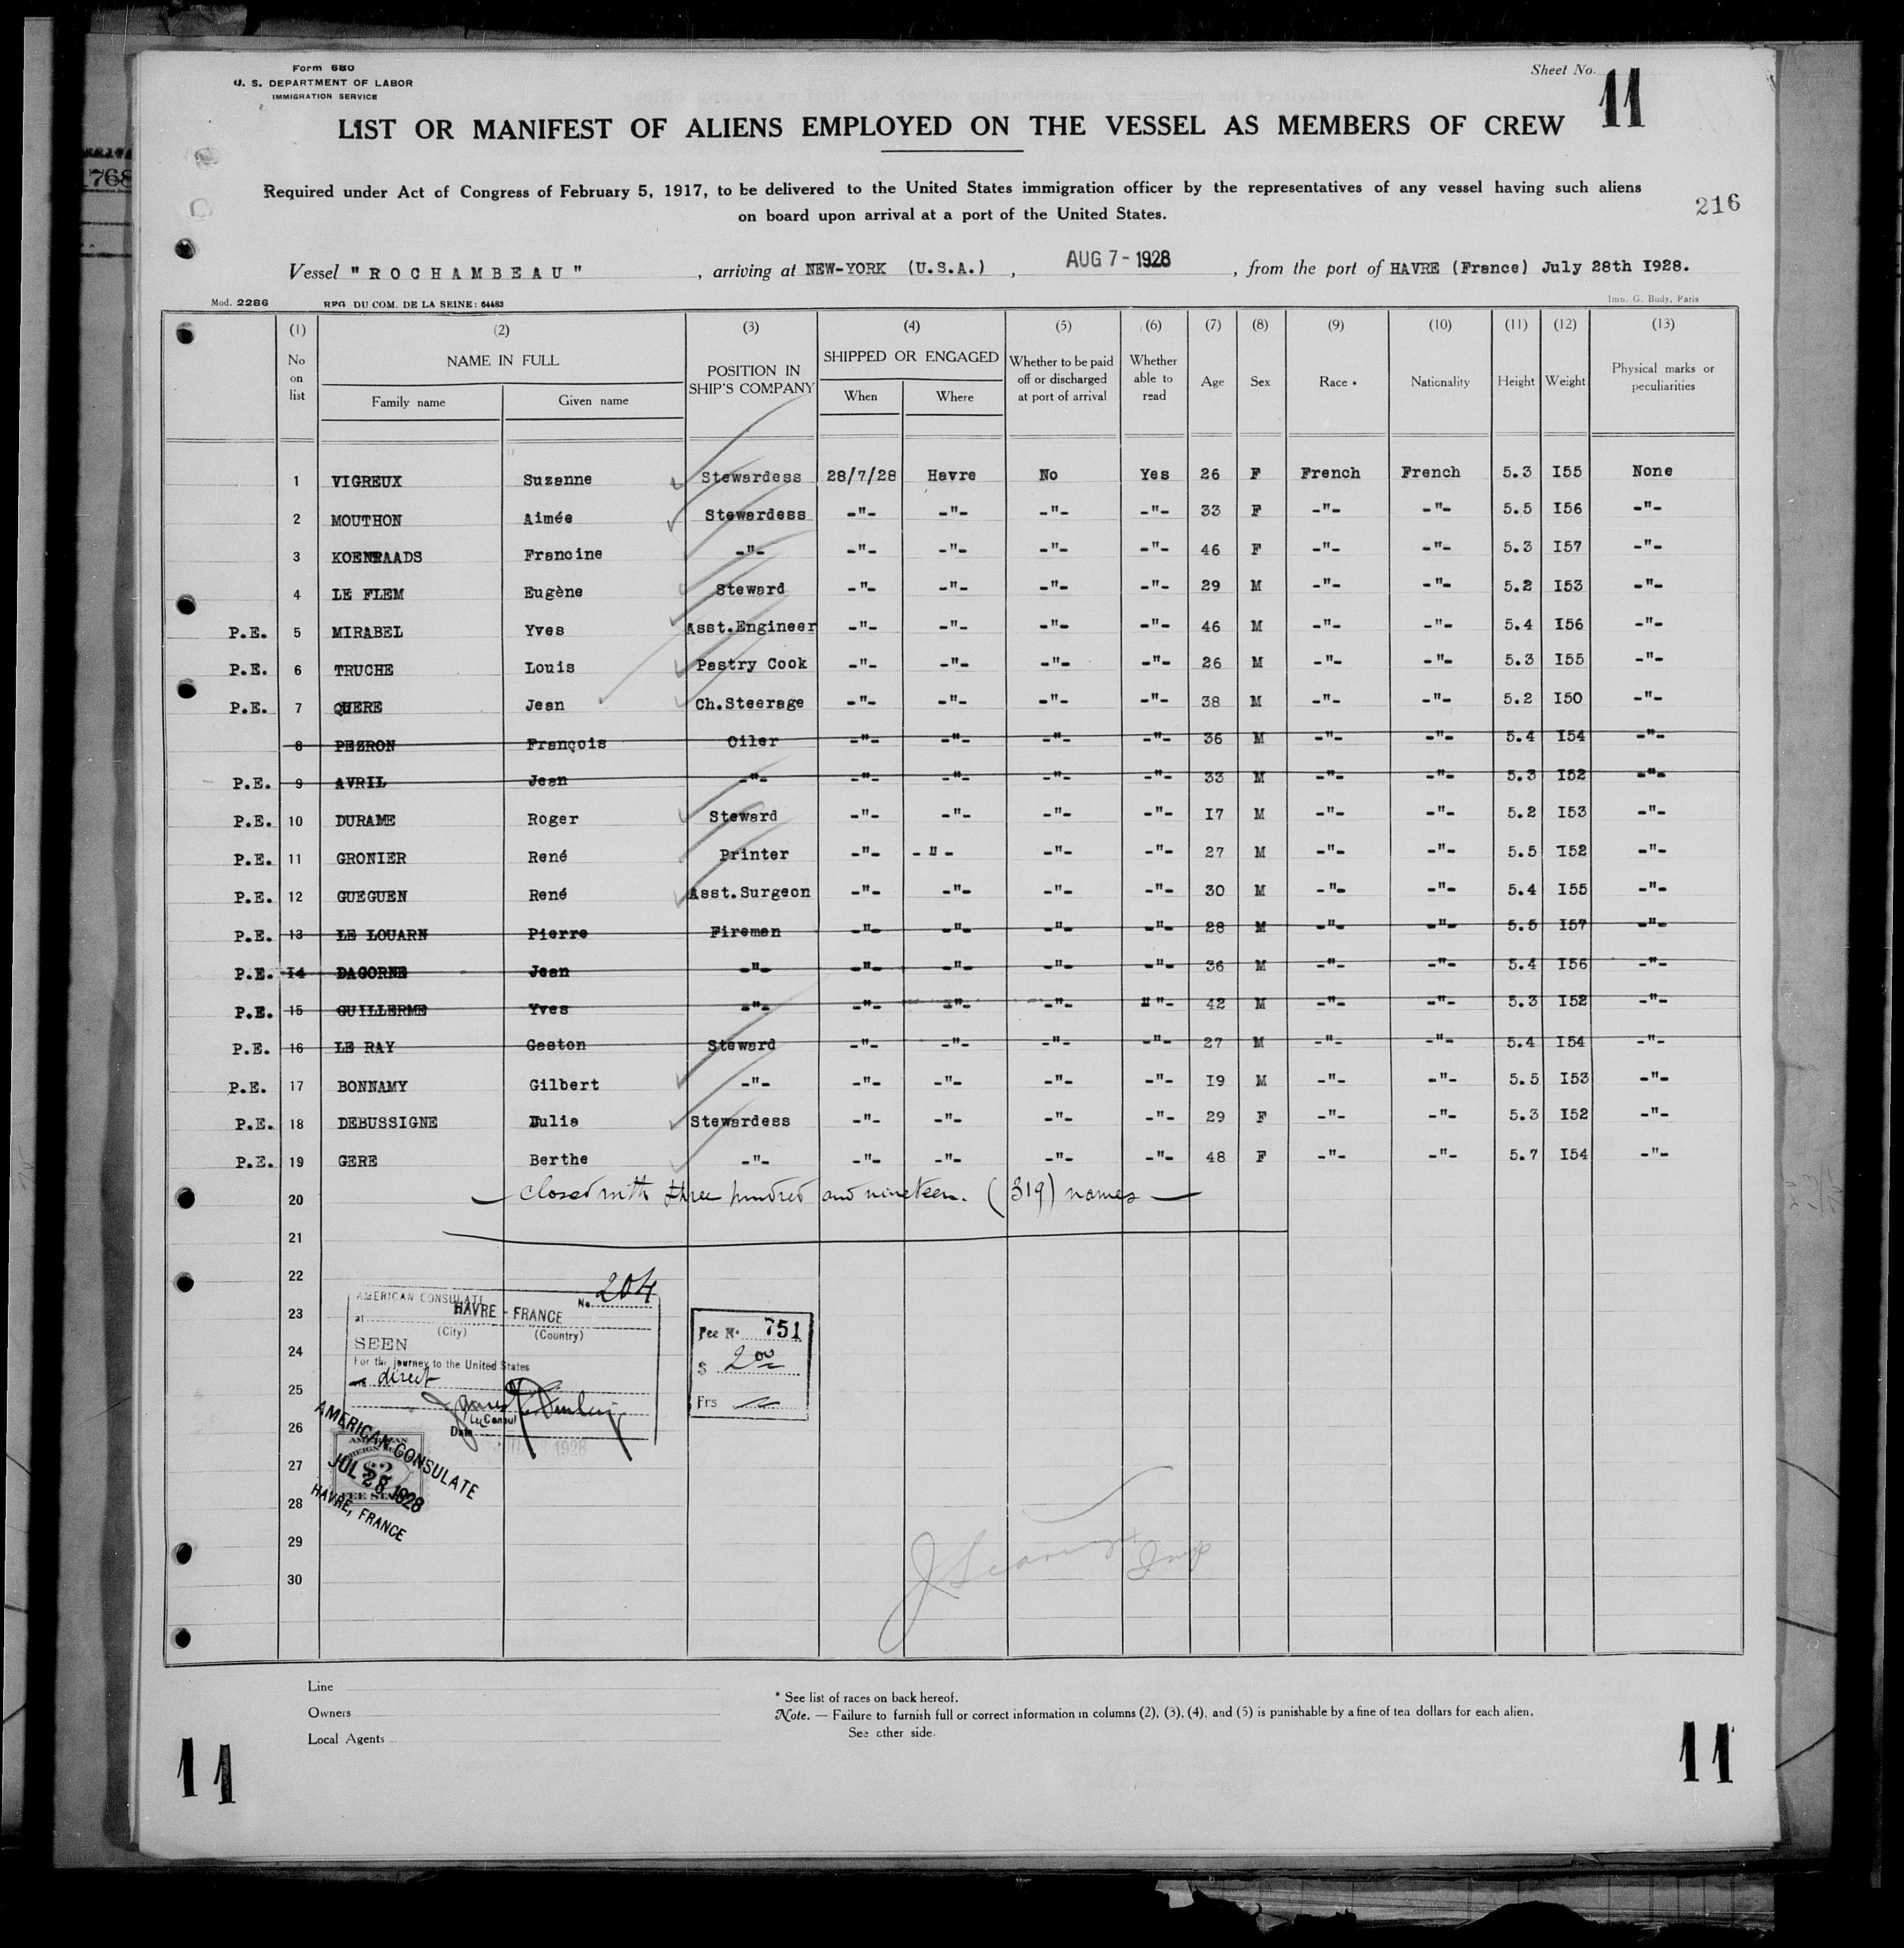 Form 680
U. S. DEPARTMENT OF LABOR
IMMIGRATION SERVICE
Sheet No. 11
LIST OR MANIFEST OF ALIENS EMPLOYED ON THE VESSEL AS MEMBERS OF CREW
Required under Act of Congress of February 5, 1917, to be delivered to the United States immigration officer by the representatives of any vessel having such aliens
on board upon arrival at a port of the United States.
216
1768
Vessel "ROCHAMBEAU" , arriving at NEW-YORK (U.S.A.) , AUG 7 - 1928 , from the port of HAVRE (France) July 28th I928.
Mod. 2286 RPG DU COM. DE LA SEINE: 64483 Imp. G. Budy, Paris
(1) (2) (3) (4) (5) (6) (7) (8) (9) (10) (11) (12) (13)
No on list NAME IN FULL POSITION IN SHIP'S COMPANY SHIPPED OR ENGAGED Whether to be paid off or discharged at port of arrival Whether able to read Age Sex Race * Nationality Height Weight Physical marks or peculiarities
Family name Given name When Where
1 VIGREUX Suzanne Stewardess 28/7/28 Havre No Yes 26 F French French 5.3 I55 None
2 MOUTHON Aimée Stewardess -"- -"- -"- -"- 33 F -"- -"- 5.5 I56 -"-
3 KOENRAADS Francine -"- -"- -"- -"- -"- 46 F -"- -"- 5.3 I57 -"-
4 LE FLEM Eugène Steward -"- -"- -"- -"- 29 M -"- -"- 5.2 I53 -"-
P.E. 5 MIRABEL Yves Asst.Engineer -"- -"- -"- -"- 46 M -"- -"- 5.4 I56 -"-
P.E. 6 TRUCHE Louis Pastry Cook -"- -"- -"- -"- 26 M -"- -"- 5.3 I55 -"-
P.E. 7 QUERE Jean Ch.Steerage -"- -"- -"- -"- 38 M -"- -"- 5.2 I50 -"-
8 PEZRON François Oiler -"- -"- -"- -"- 36 M -"- -"- 5.4 I54 -"-
P.E. 9 AVRIL Jean -"- -"- -"- -"- -"- 33 M -"- -"- 5.3 I52 -"-
P.E. 10 DURAME Roger Steward -"- -"- -"- -"- I7 M -"- -"- 5.2 I53 -"-
P.E. 11 GRONIER René Printer -"- - " - -"- -"- 27 M -"- -"- 5.5 I52 -"-
P.E. 12 GUEGUEN René Asst.Surgeon -"- -"- -"- -"- 30 M -"- -"- 5.4 I55 -"-
P.E. 13 LE LOUARN Pierre Fireman -"- -"- -"- -"- 28 M -"- -"- 5.5 I57 -"-
P.E. I4 DAGORNE Jean -"- -"- -"- -"- -"- 36 M -"- -"- 5.4 I56 -"-
P.E. 15 GUILLERME Yves -"- -"- -"- -"- ""- 42 M -"- -"- 5.3 I52 -"-
P.E. 16 LE RAY Gaston Steward -"- -"- -"- -"- 27 M -"- -"- 5.4 I54 -"-
P.E. 17 BONNAMY Gilbert -"- -"- -"- -"- -"- I9 M -"- -"- 5.5 I53 -"-
P.E. 18 DEBUSSIGNE Julia Stewardess -"- -"- -"- -"- 29 F -"- -"- 5.3 I52 -"-
P.E. 19 GERE Berthe -"- -"- -"- -"- -"- 48 F -"- -"- 5.7 I54 -"-
20 — closed with three hundred and nineteen. (319) names —
21
22
23
24
25
26
27
28
29
30
AMERICAN CONSULATE No. 204
at HAVRE - FRANCE
(City) (Country)
SEEN
For the journey to the United States
direct
Consul
Date JUL 28 1928
Fee No. 751
$ 2 00
Frs
AMERICAN CONSULATE
JUL 28 1928
HAVRE, FRANCE
$2
Line
Owners
Local Agents
* See list of races on back hereof.
Note. — Failure to furnish full or correct information in columns (2), (3), (4), and (5) is punishable by a fine of ten dollars for each alien.
See other side.
11
11